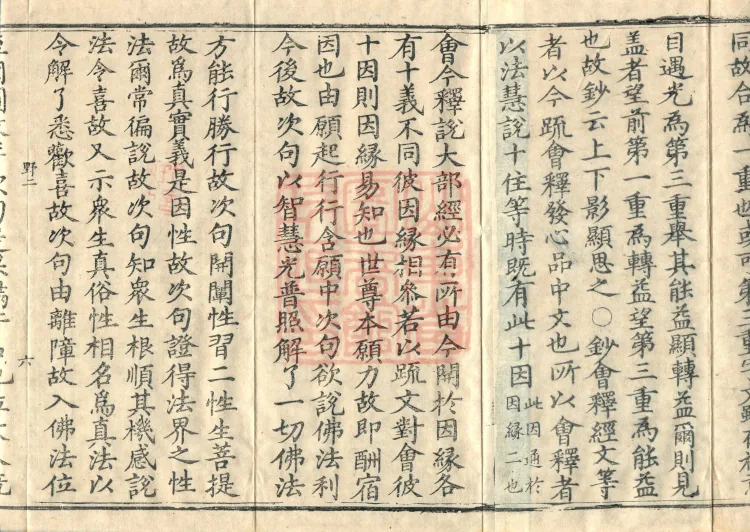 同故合為一重也
目遇光為第三重舉其能益顯轉益爾則見
蓋者望前第一重為轉益望第三重為能益
也故鈔云上下影顯思之○鈔會釋經文等
者以今疏會釋發心品中文也所以會釋者
以法慧說十住等時既有此十因此因通於因緣二也
會今釋說大部經必有所由今開於因緣各
有十義不同彼因緣相參若以疏文對會彼
十因則因緣易知也世尊本願力故即酬宿
因也由願起行行含願中次句欲說佛法利
今後故次句以智慧光普照解了一切佛法
方能行勝行故次句開闡性習二性生菩提
故為真實義是因性故次句證得法界之性
法爾常徧說故次句知眾生根順其機感說
法令喜故又示眾生真俗性相名為真法以
令解了悉歡喜故次句由離障故入佛法位
野二
六